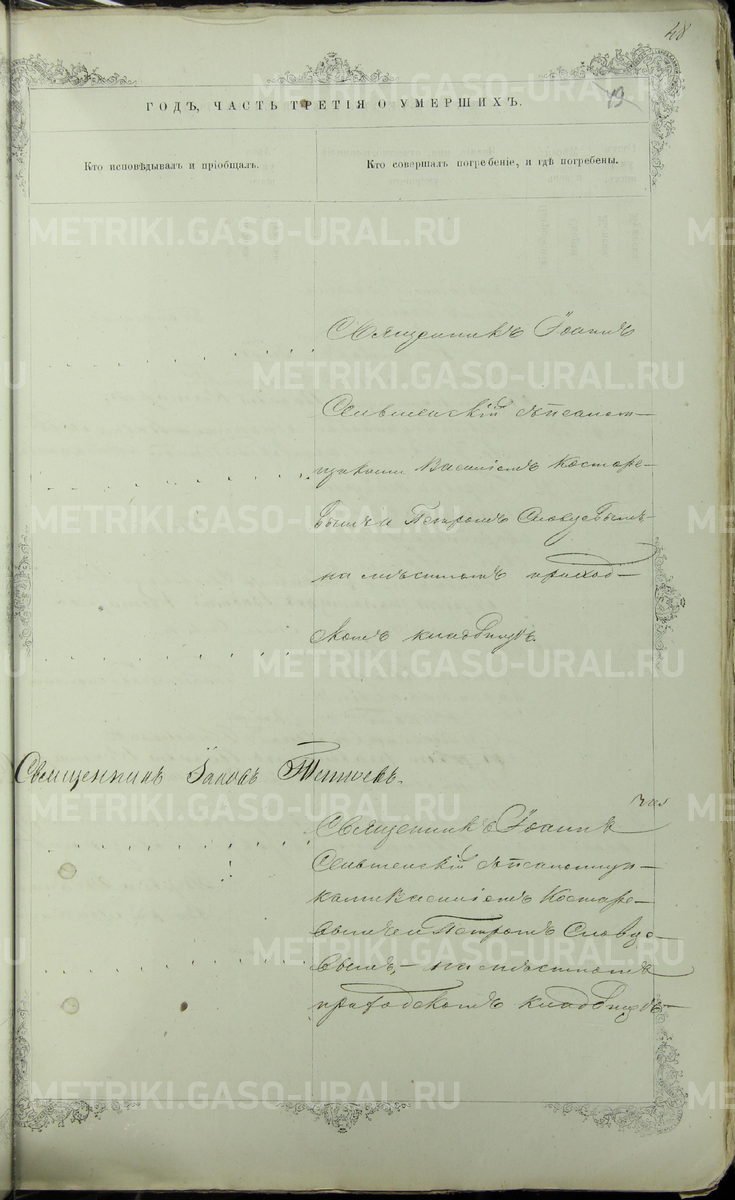 48
49
ГОДЪ, ЧАСТЬ ТРЕТІЯ О УМЕРШИХЪ.
Кто исповѣдывалъ и пріобщалъ.
Кто совершалъ погребеніе, и гдѣ погребены.
METRIKI.GASO-URAL.RU
Священникъ Іоаннъ
Сельменскій съ псалом-
щиками Василіемъ Костаре-
вымъ и Петромъ Словцовымъ
на мѣстномъ приход-
скомъ кладбищѣ.
Священникъ Іаковъ
Священникъ Іоаннъ
Сельменскій съ псаломщи-
ками Василіемъ Костаре-
вымъ и Петромъ Словцо-
вымъ, - на мѣстномъ
приходскомъ кладбищѣ-